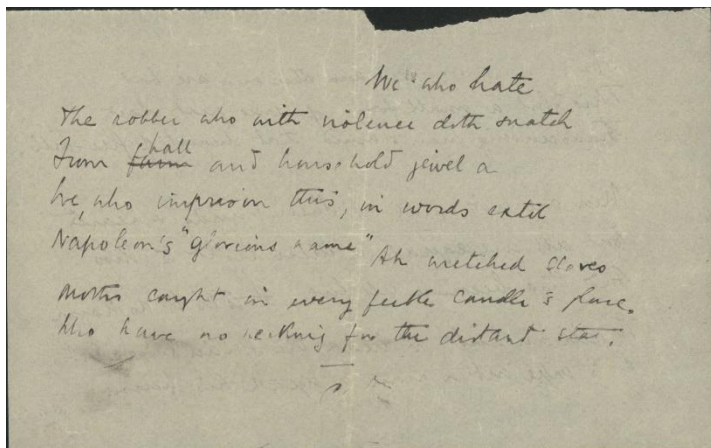 We who hate
The robber who with violence doth snatch
From farm hall and household jewel a
We, who imprison this, in words extil
Napoleon's "glorious name" Ah wretched slaves
Moths caught in every feeble candle's flare.
Who have no reckning for the distant star.